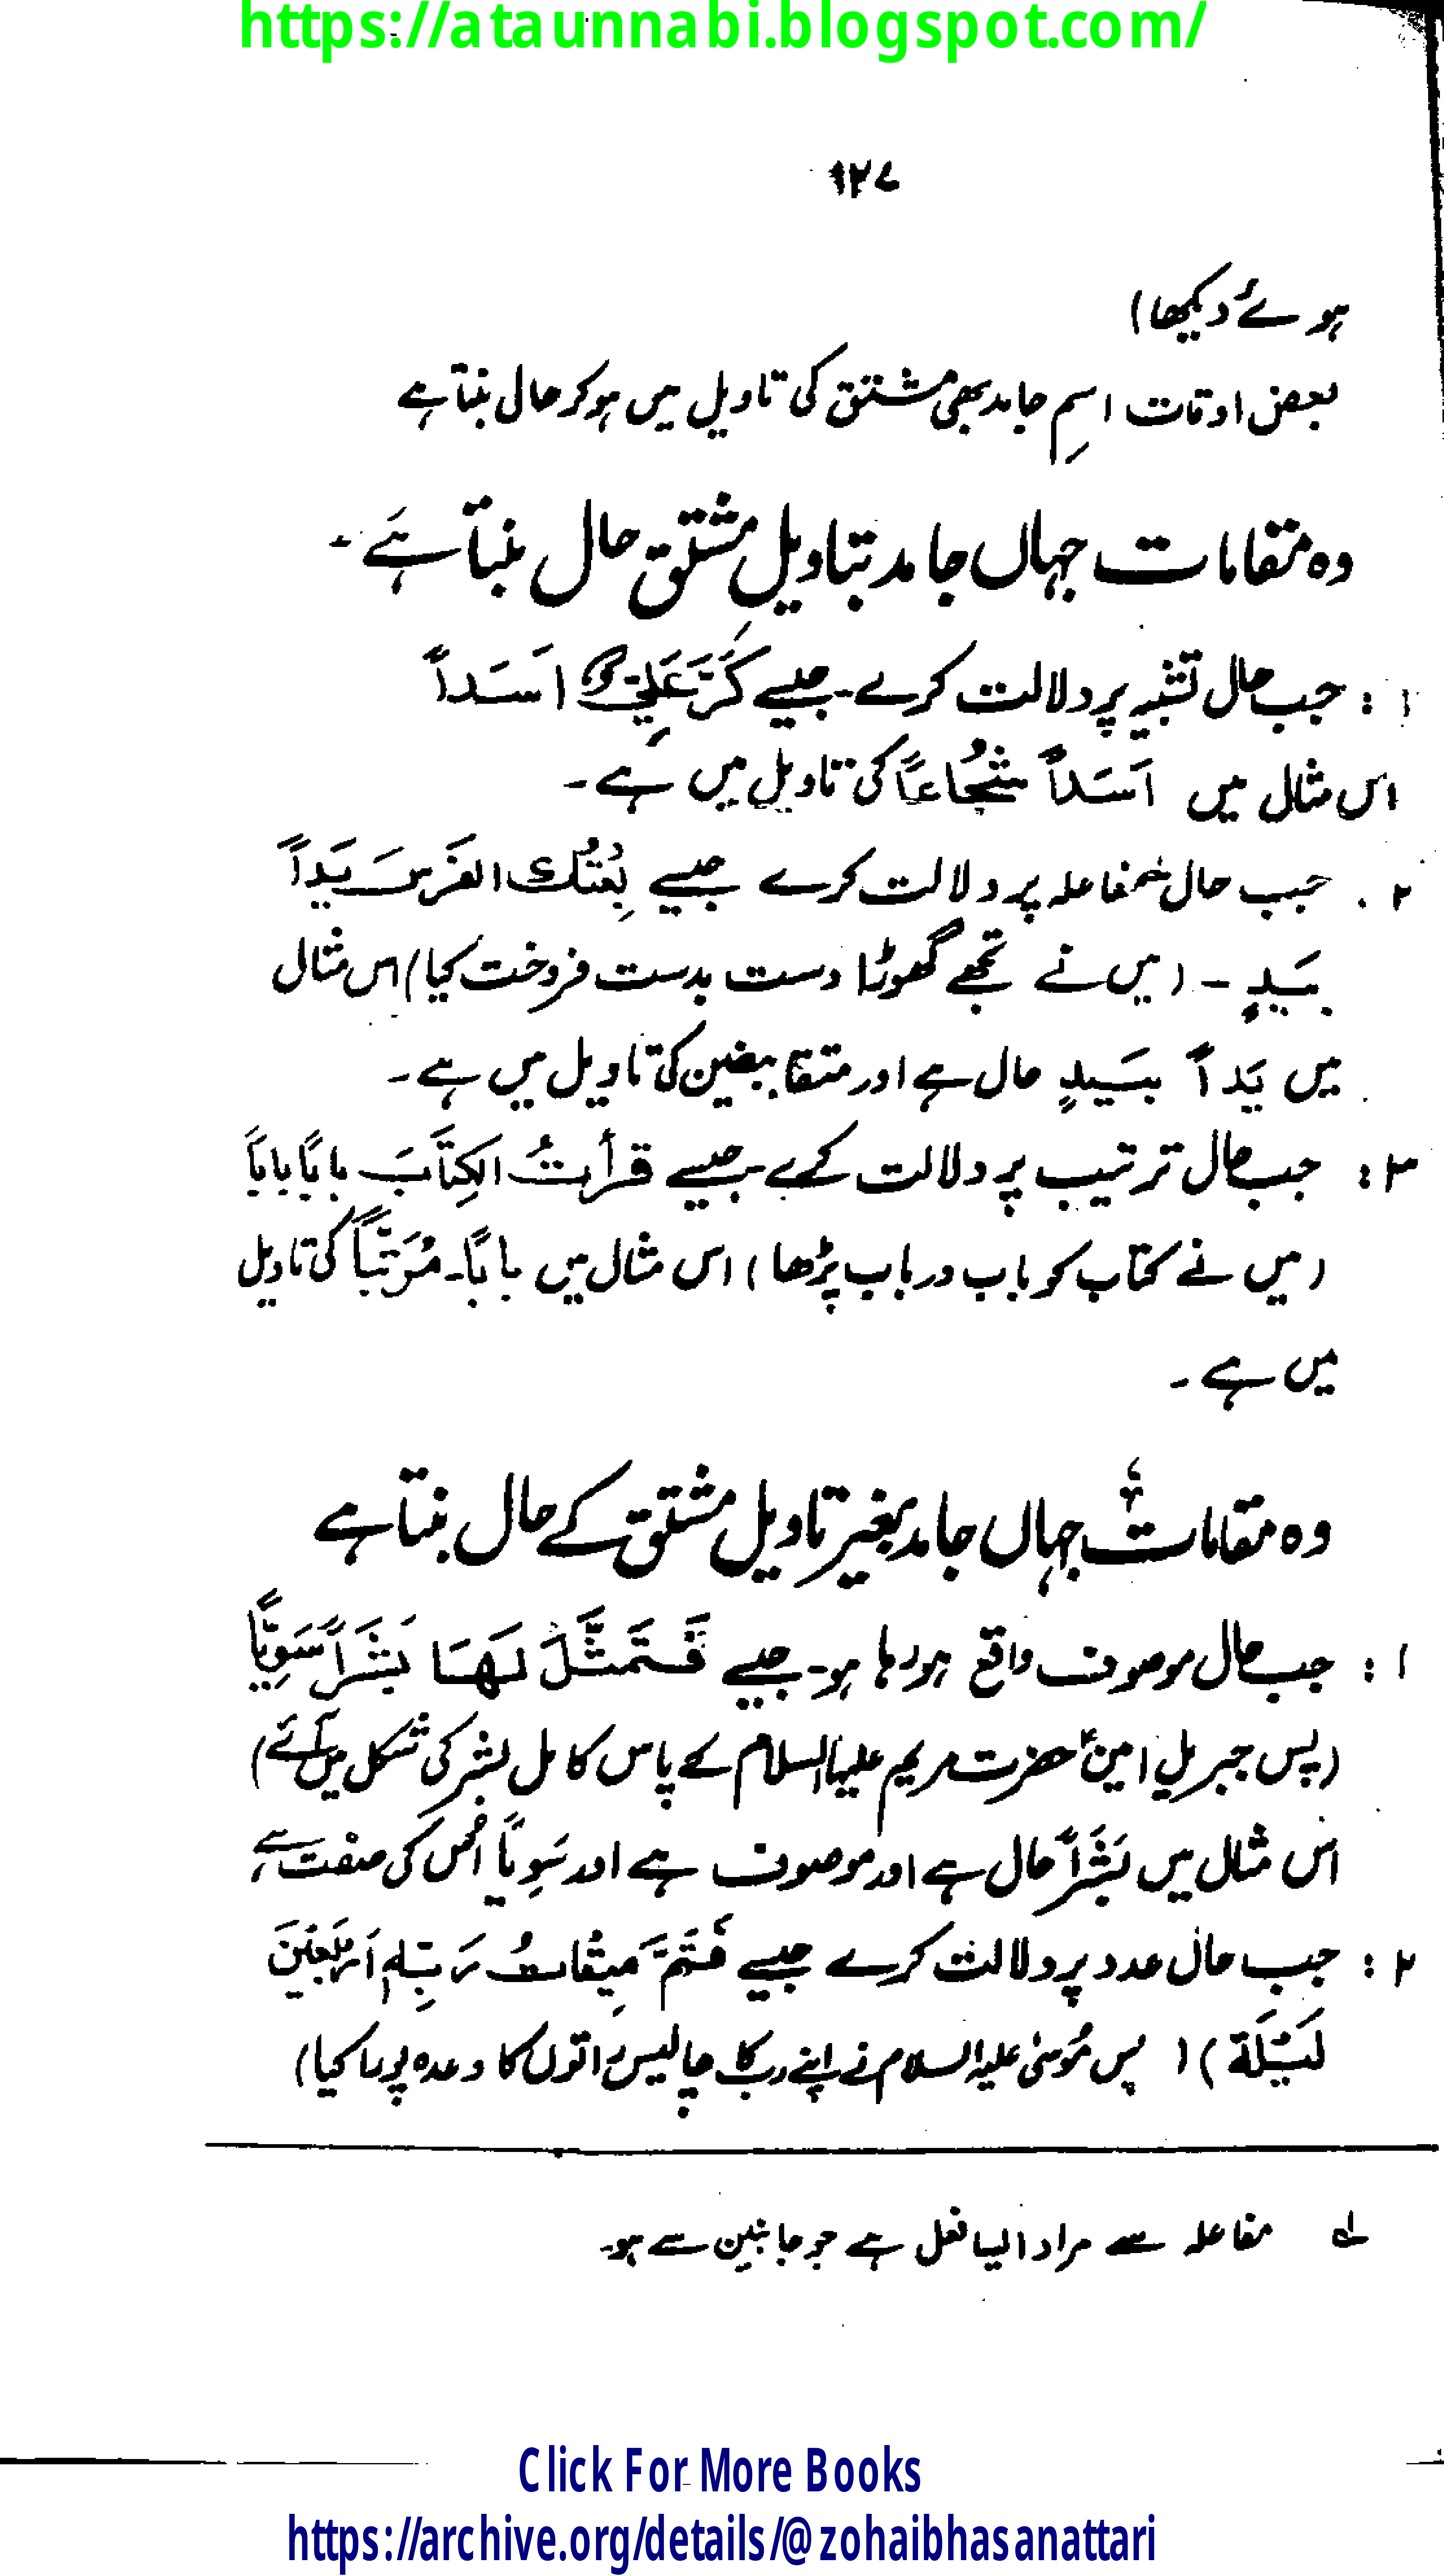 https://ataunnabi.blogspot.com/
۱۲۷
ہوئے دیکھا)
بعض اوقات اسمِ جامد بھی مشتق کی تاویل میں ہو کر حال بنتا ہے
وہ مقامات جہاں جامد بتاویلِ مشتق حال بنتا ہے۔
۱: جب حال تشبیہ پر دلالت کرے۔ جیسے کَرَّ عَلِیٌّ اَسَداً
اس مثال میں اَسَداً شُجَاعاً کی تاویل میں ہے۔
۲. جب حال مفاعلہ پر دلالت کرے جیسے بِعْتُكَ الفَرَسَ یَداً
بِیَدٍ ۔ (میں نے تجھے گھوڑا دست بدست فروخت کیا) اس مثال
میں یَداً بِیَدٍ حال ہے اور متقابضین کی تاویل میں ہے۔
۳: جب حال ترتیب پر دلالت کرے جیسے قرأتُ الکِتَابَ بابًا بابًا
(میں نے کتاب کو باب در باب پڑھا) اس مثال میں بابًا۔ مُرَتَّبًا کی تاویل
میں ہے۔
وہ مقامات جہاں جامد بغیر تاویل مشتق کے حال بنتا ہے
۱: جب حال موصوف واقع ہو رہا ہو۔ جیسے فَتَمَثَّلَ لَهَا بَشَراً سَوِیًّا
(پس جبریلِ امینؑ حضرت مریم علیہا السلام کے پاس کامل بشر کی شکل میں آئے)
اس مثال میں بَشَراً حال ہے اور موصوف ہے اور سَوِیًّا اُس کی صفت ہے
۲: جب حال عدد پر دلالت کرے جیسے فَتَمَّ مِیْقَاتُ رَبِّهٖ اَرْبَعِیْنَ
لَیْلَة) ( پس مُوسیٰ علیہ السلام نے اپنے رب کا چالیس راتوں کا وعدہ پورا کیا)
لہ مفاعلہ سے مراد ایسا فعل ہے جو جانبین سے ہو۔
Click For More Books
https://archive.org/details/@zohaibhasanattari